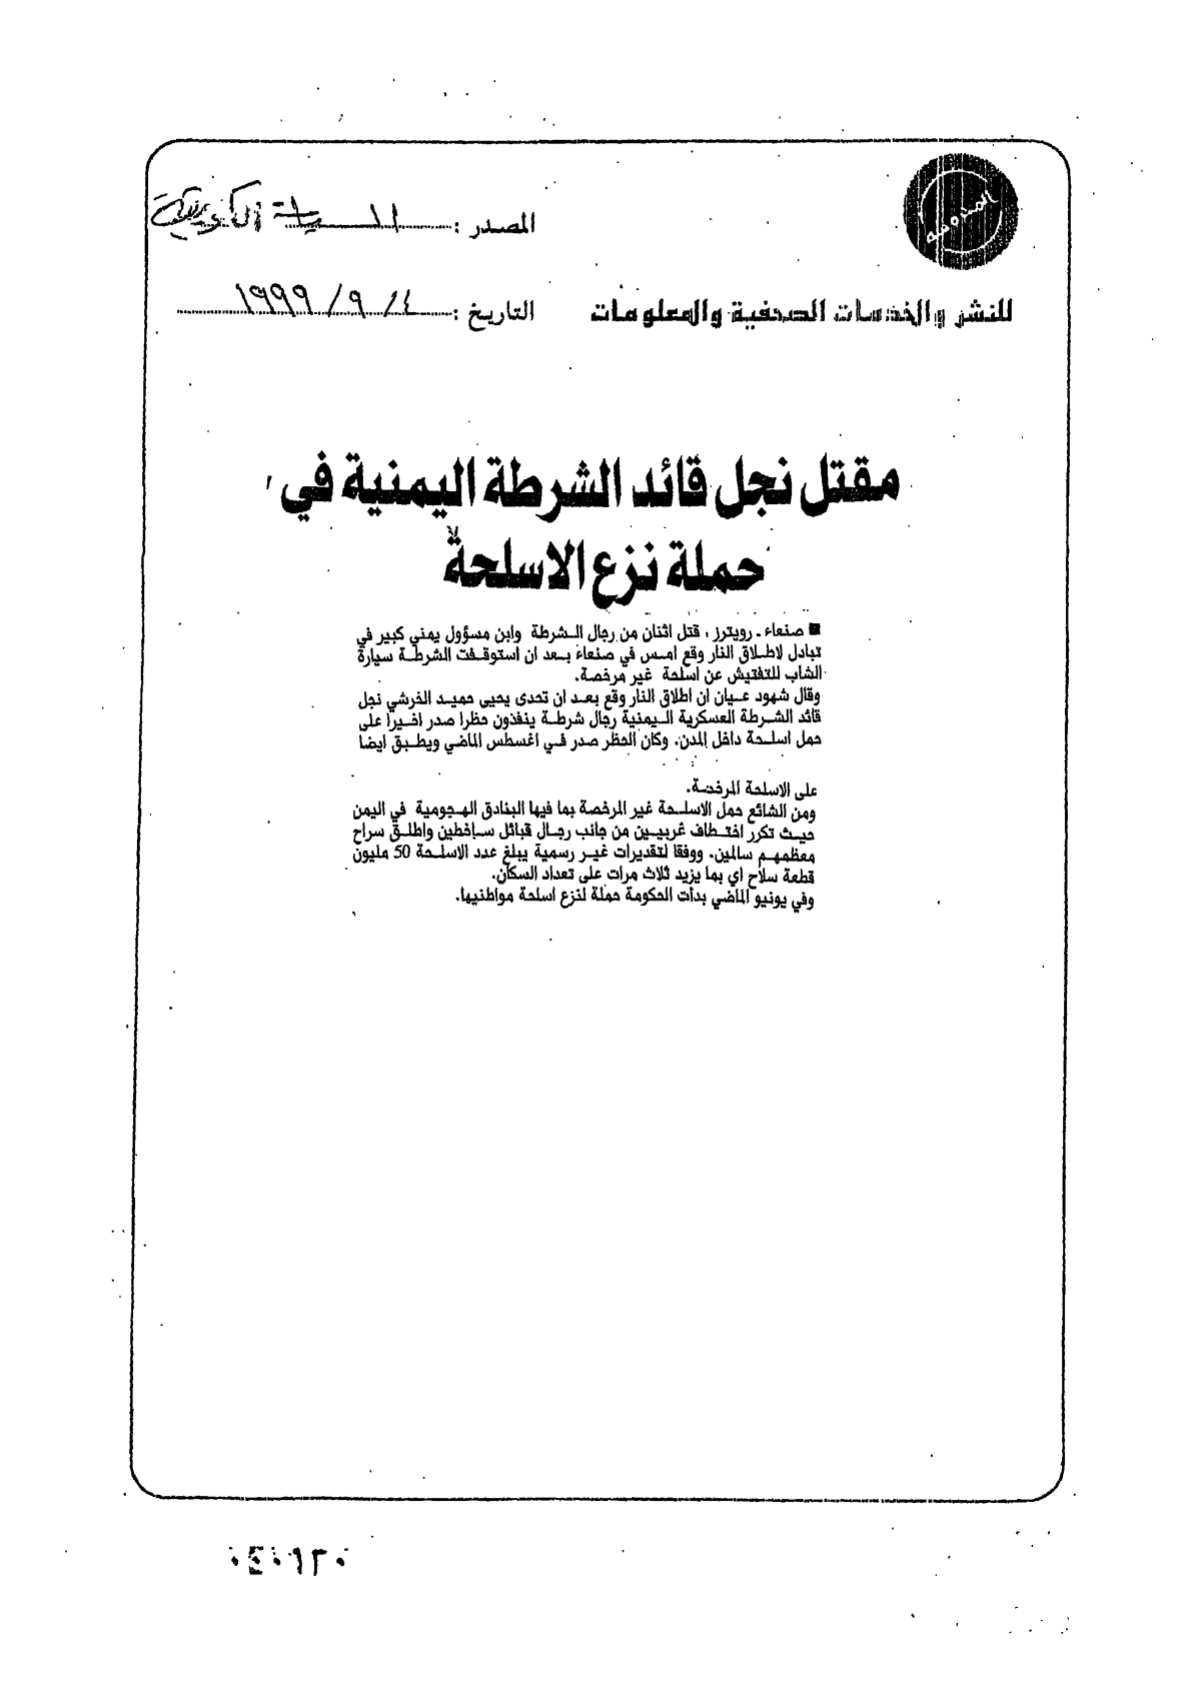 المدومه
المصدر : السياسة الكويتية
للنشر والخدسات الصحفية والمعلومات
التاريخ : ٤ / ٩ / ١٩٩٩
مقتل نجل قائد الشرطة اليمنية في
حملة نزع الاسلحة
■ صنعاء ـ رويترز ، قتل اثنان من رجال الشرطة وابن مسؤول يمني كبير في
تبادل لاطلاق النار وقع امس في صنعاء بعد ان استوقفت الشرطة سيارة
الشاب للتفتيش عن اسلحة غير مرخصة.
وقال شهود عيان ان اطلاق النار وقع بعد ان تحدى يحيى حميد الخرشي نجل
قائد الشرطة العسكرية اليمنية رجال شرطة ينفذون حظرا صدر اخيرا على
حمل اسلحة داخل المدن. وكان الحظر صدر في اغسطس الماضي ويطبق ايضا
على الاسلحة المرخصة.
ومن الشائع حمل الاسلحة غير المرخصة بما فيها البنادق الهجومية في اليمن
حيث تكرر اختطاف غربيين من جانب رجال قبائل ساخطين واطلق سراح
معظمهم سالمين. ووفقا لتقديرات غير رسمية يبلغ عدد الاسلحة 50 مليون
قطعة سلاح اي بما يزيد ثلاث مرات على تعداد السكان.
وفي يونيو الماضي بدأت الحكومة حملة لنزع اسلحة مواطنيها.